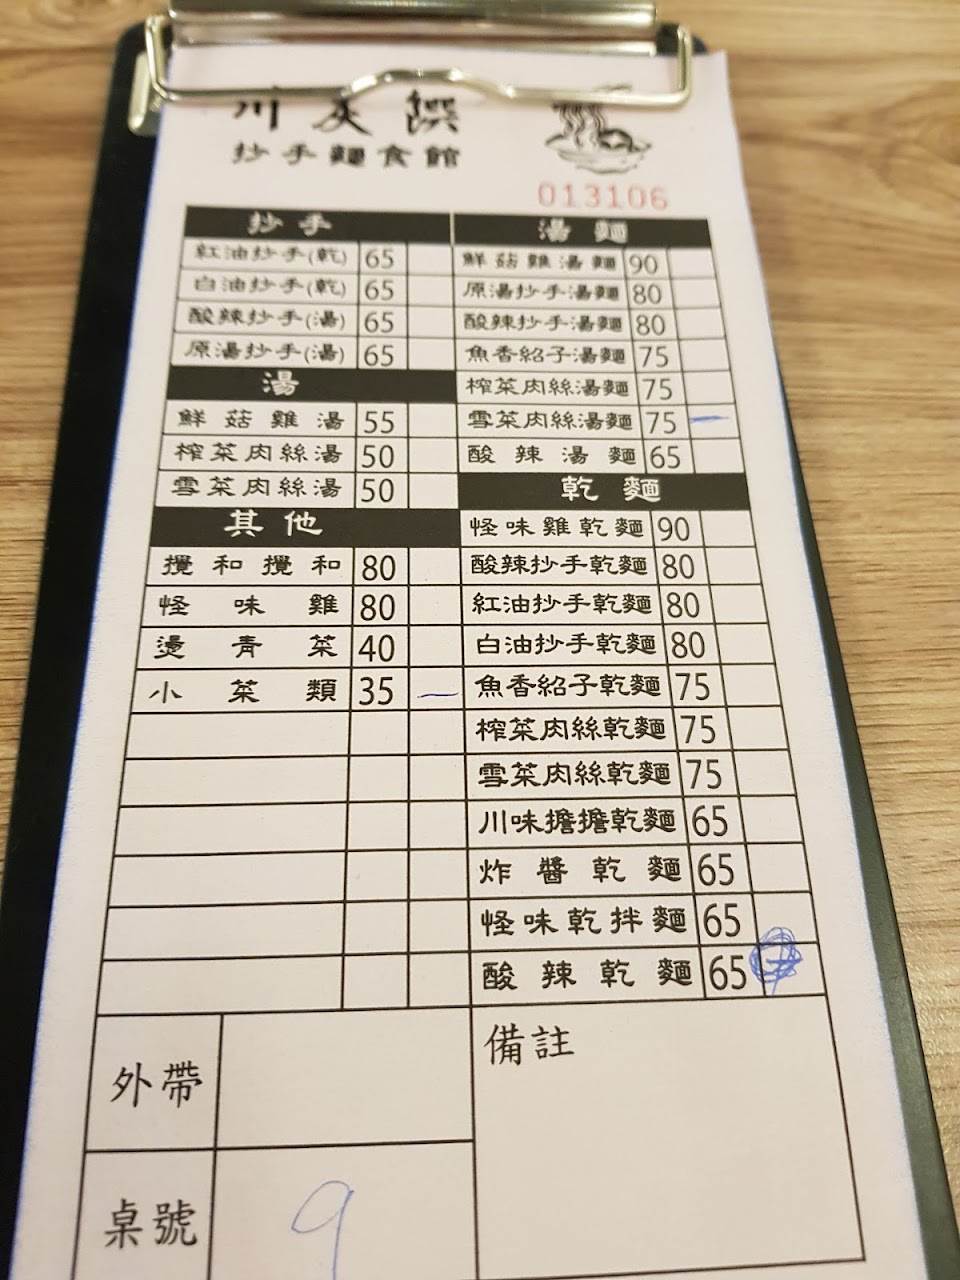 川炙饌
抄手麵食館
013106
抄手
紅油抄手(乾) 65
白油抄手(乾) 65
酸辣抄手(湯) 65
原湯抄手(湯) 65
湯
鮮菇雞湯 55
榨菜肉絲湯 50
雪菜肉絲湯 50
其他
攪和攪和 80
怪味雞 80
燙青菜 40
小菜類 35 一
湯麵
鮮菇雞湯麵 90
原湯抄手湯麵 80
酸辣抄手湯麵 80
魚香紹子湯麵 75
榨菜肉絲湯麵 75
雪菜肉絲湯麵 75 一
酸辣湯麵 65
乾麵
怪味雞乾麵 90
酸辣抄手乾麵 80
紅油抄手乾麵 80
白油抄手乾麵 80
魚香紹子乾麵 75
榨菜肉絲乾麵 75
雪菜肉絲乾麵 75
川味擔擔乾麵 65
炸醬乾麵 65
怪味乾拌麵 65
酸辣乾麵 65
外帶
備註
桌號 9